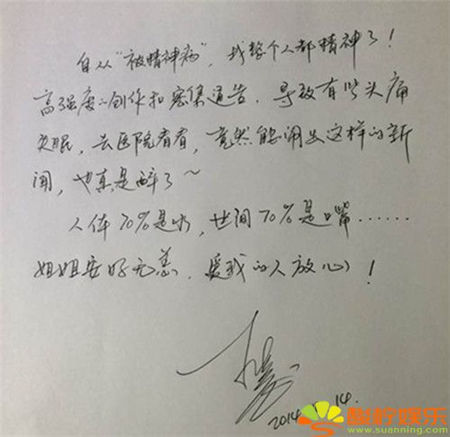 自从“被精神病”，我整个人都精神了！
高强度的创作和密集通告，导致有些头痛
失眠，去医院看看，竟然能闹出这样的新
闻，也真是醉了～
人体70%是水，世间70%是嘴……
姐姐安好无恙，爱我的人放心！
2014 14.
酸柠娱乐
www.suanning.com